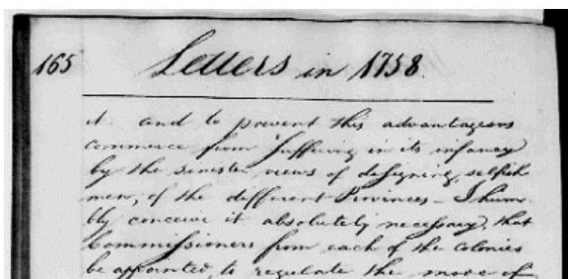 165 Letters in 1758.
it. and to prevent this advantageous
commerce from suffering in its infancy
by the sinester views of designing, selfish
men, of the different Provinces - I hum-
bly conceive it absolutely necessary, that
Commissioners from each of the Colonies
be appointed, to regulate the mode of